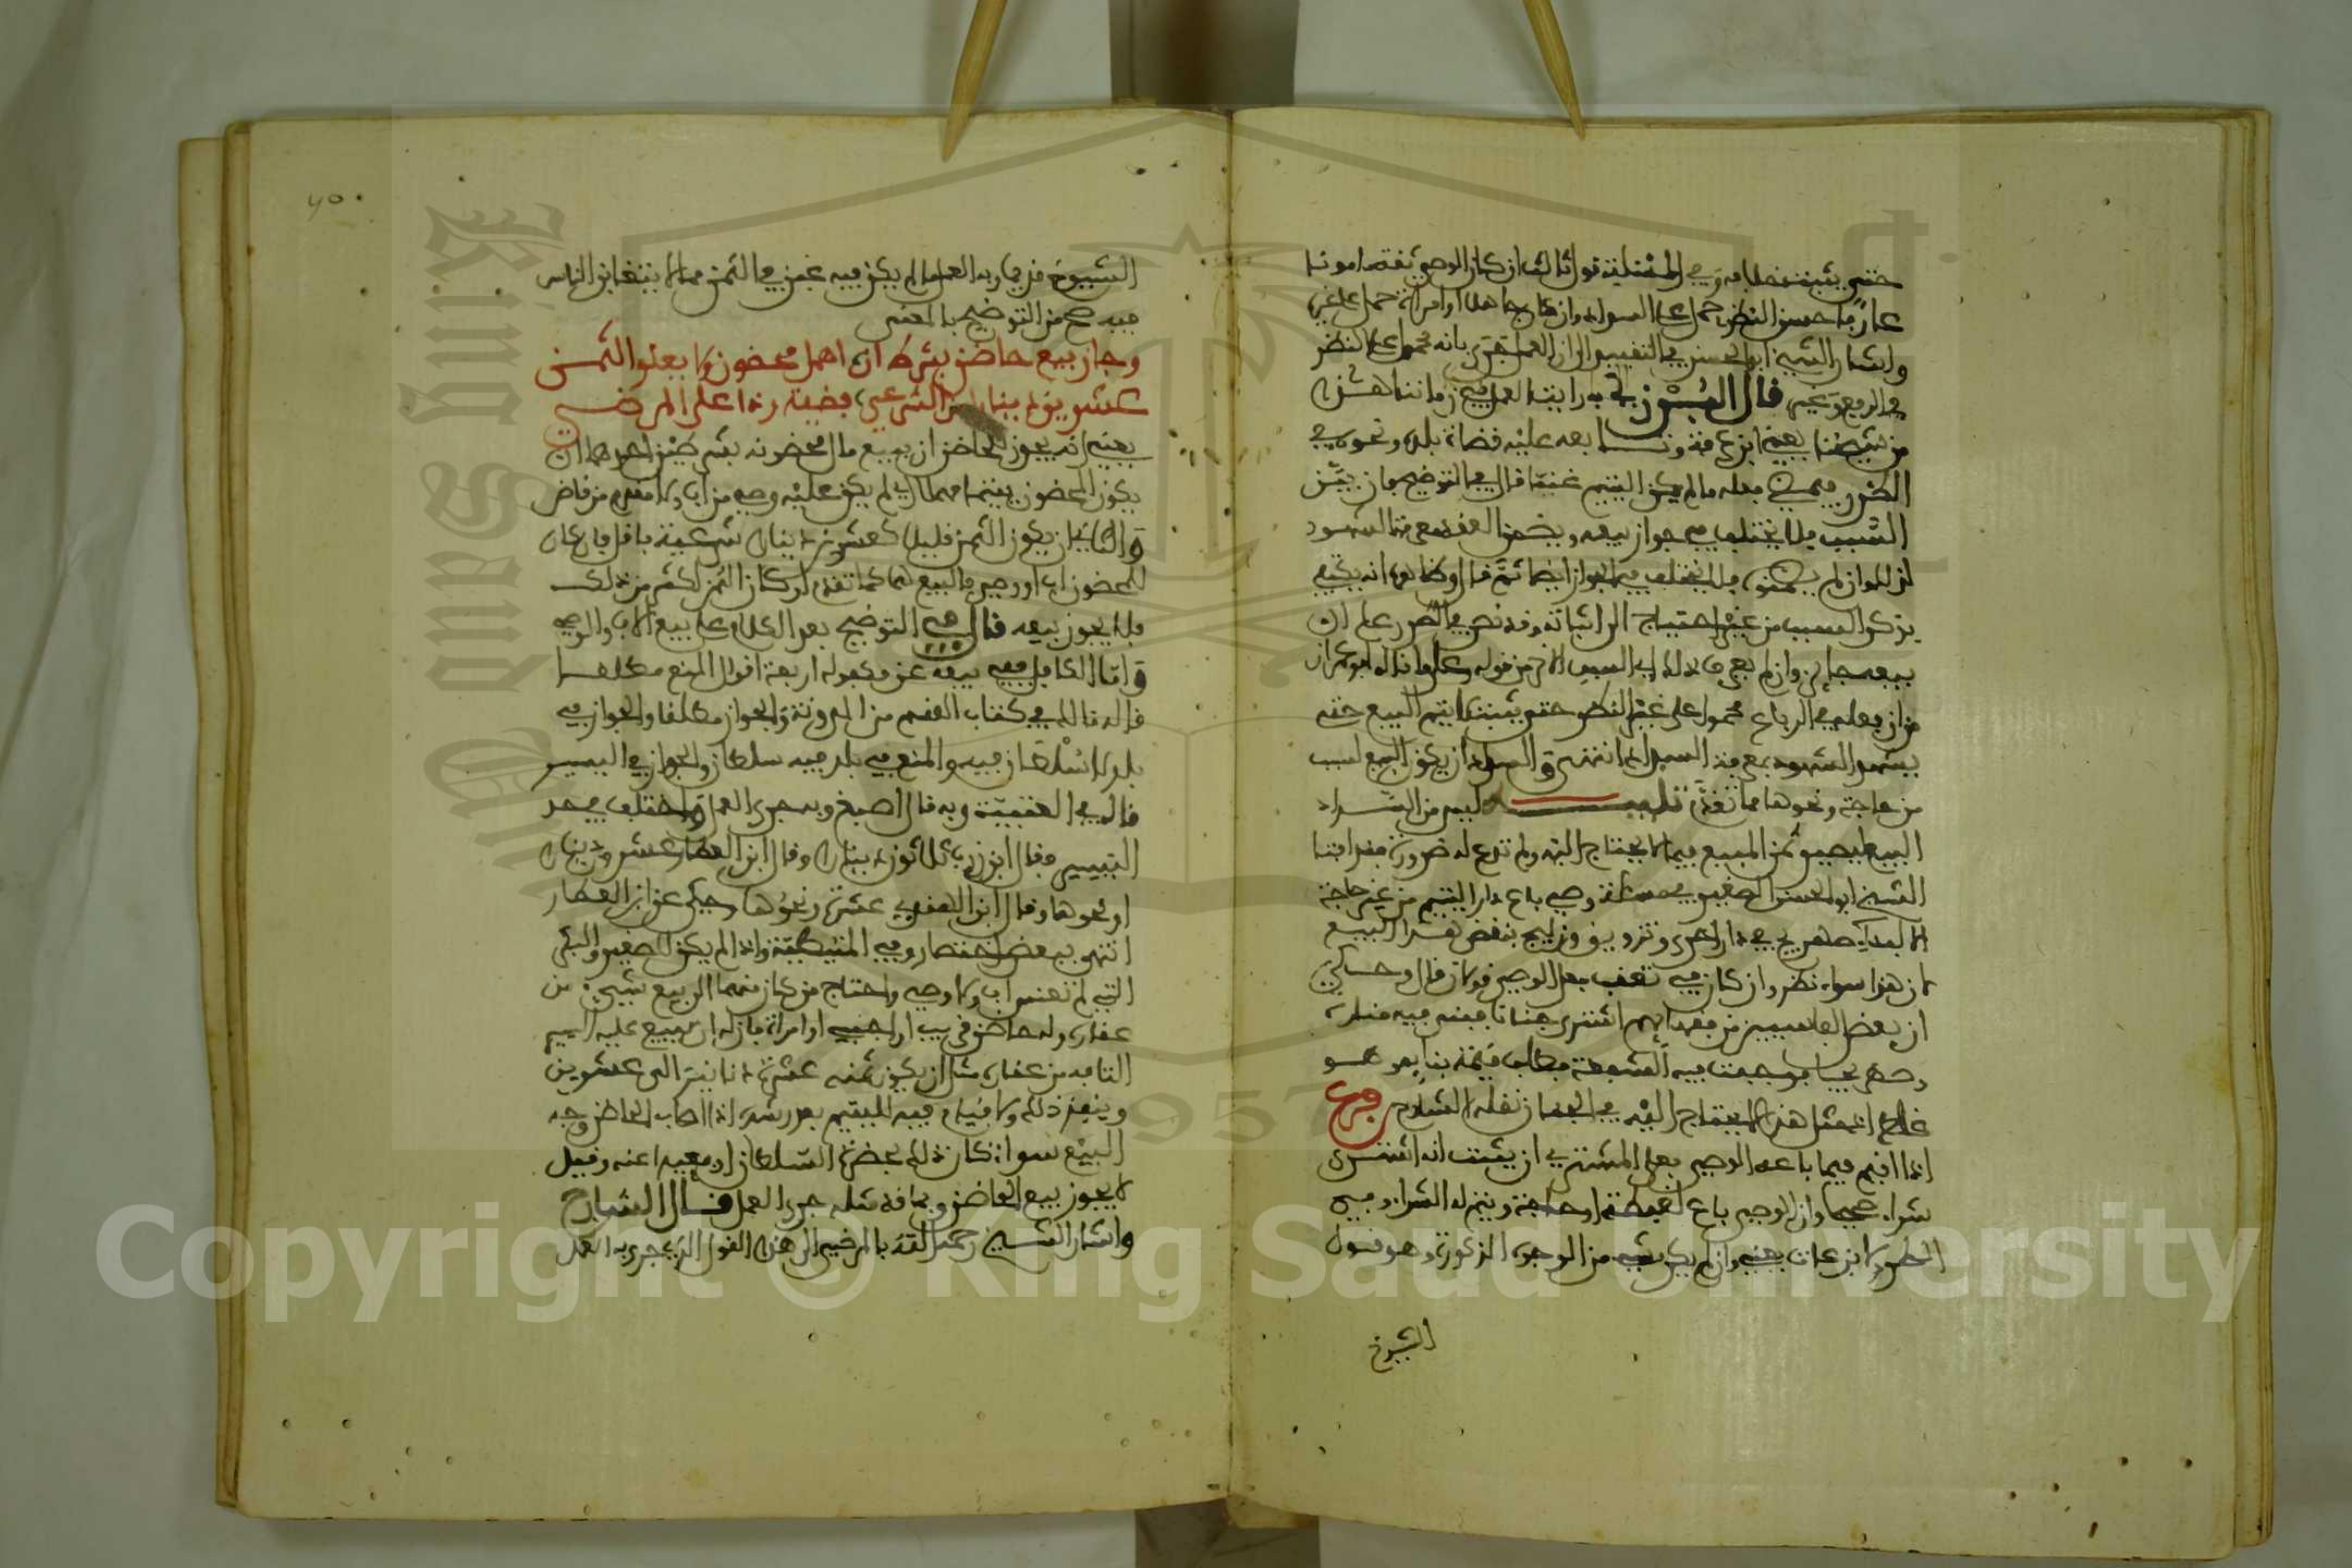 حتى يثبت خلافه وفي المسئلة قول ثالث ان كان الوصي ثقة مامونا
عارفا حسن النظر حمل على السداد وان كان جاهلا او امراة حمل على غيره
واشار الشيخ ابو الحسن في التقييد الى ان العمل تقرر بانه محمول على النظر
في الربع وغيره قال البرزلي به رايت العمل في زماننا هذا
من شيخنا يعني ابن عرفة وتابعه عليه قضاة بلده ونحوه في
الطرر فيمضي فعله ما لم يكن لليتيم غبنا قال في التوضيح فان بين
السبب فلا يختلف في جواز بيعه ويضمن العقد معرفة الشهود
لذلك وان لم يضمنوه فلا يختلف فيه بالجواز ايضا ثم قال وظاهره انه يكتفي
بذكر السبب من غير احتياج الى اثباته وقد نص في الطرر على ان
بيعه جائز وان لم يعرف ذلك السبب الا من قوله وعلى ما قاله ابو عمران
من ان فعله في الرباع محمول على غير النظر حتى يثبت لا يتم البيع حتى
يشهد الشهود بمعرفة السبب انتهى والسداد ان يكون البيع لسبب
من حاجة ونحوها مما تقدم تنبيه ليس من السداد
البيع ليصير ثمن المبيع فيما لا يحتاج اليه ولم تدع له ضرورة فقد افتى
الشيخ ابو الحسن الصغير في مسئلة وصي باع دار اليتيم من غير حاجة
الا لبناء صهريج في دار اخرى وتزويق وزليج بنقض هذا البيع
لان هذا سوء نظر وان كان في تعقب فعل الوصي قولان قال وحكى
ان بعض الفاسيين من فقهائهم اشترى جنانا فبنى فيه منارة
وصهريجا فوجبت فيه الشفعة فطلب قيمة بنائه
غلاء اذ مثل هذا لا يحتاج اليه في الجنان نقله الشارح فرع
اذا اقيم فيما باعه الوصي فعلى المشتري ان يثبت انه اشترى
شراء صحيحا وان الوصي باع لغبطة او حاجة ويتم له الشراء وفي
الطرر لابن عات يعني وان لم يكن بشيء من الوجوه المذكورة وهو قول
الشيوخ
٧٥٠
الشيوخ فمن يقاربه العمل ما لم يكن فيه غبن في الثمن مما لا يتغابن الناس
فيه صح من التوضيح بالمعنى
وجاز بيع حاضن بشرط ان اهمل محضون ولا يعلو الثمن
عشرين دينارا من الشرعي فضة وذا على المرضي
يعني انه يجوز للحاضن ان يبيع مال محضونه بشرطين احدهما ان
يكون المحضون يتيما مهملا اي لم يكن عليه وصي من اب ولا مقدم من قاض
والثاني ان يكون الثمن قليلا كعشرين دينارا شرعية فاقل فان كان
للمحضون اب او وصي فالبيع لهما كما تقدم او كان الثمن اكثر من ذلك
فلا يجوز بيعه قال في التوضيح بعد الكلام على بيع الاب والوصي
واما الكافل ففي بيعه عن مكفوله اربعة اقوال المنع مطلقا
قاله مالك في كتاب القسم من المدونة والجواز مطلقا والجواز في
بلد لا سلطان فيه والمنع في بلد فيه سلطان والجواز في اليسير
قاله في العتبية وبه قال اصبغ وبه جرى العمل واختلف في حد
اليسير فقال ابن زرب ثلاثون دينارا وقال ابن العطار عشرون دينارا
او نحوها وقال ابن الهندي عشرة ونحوها وحكي عن ابن العطار
انتهى ببعض اختصار وفي المتيطية واذا لم يكن للصغير والبكر
التي لم تعنس اب ولا وصي واحتاج من كان منهما الى بيع شيء من
عقاره وله حاضن قريب او اجنبي او امراة فان له ان يبيع عليه اليسير
التافه من عقاره مثل ان يكون ثمنه عشرة دنانير الى عشرين
وينفذ ذلك ولا قيام فيه لليتيم بعد رشده اذا اصاب الحاضن وجه
البيع سواء كان ذلك بحضرة السلطان او مغيبا عنه وقيل
لا يجوز بيع الحاضن وبما قدمناه جرى العمل قال الشارح
واشار الشيخ رحمه الله بالمرضي الى هذا القول الذي جرى به العمل
Copyright © King Saud University
King Saud University
1957